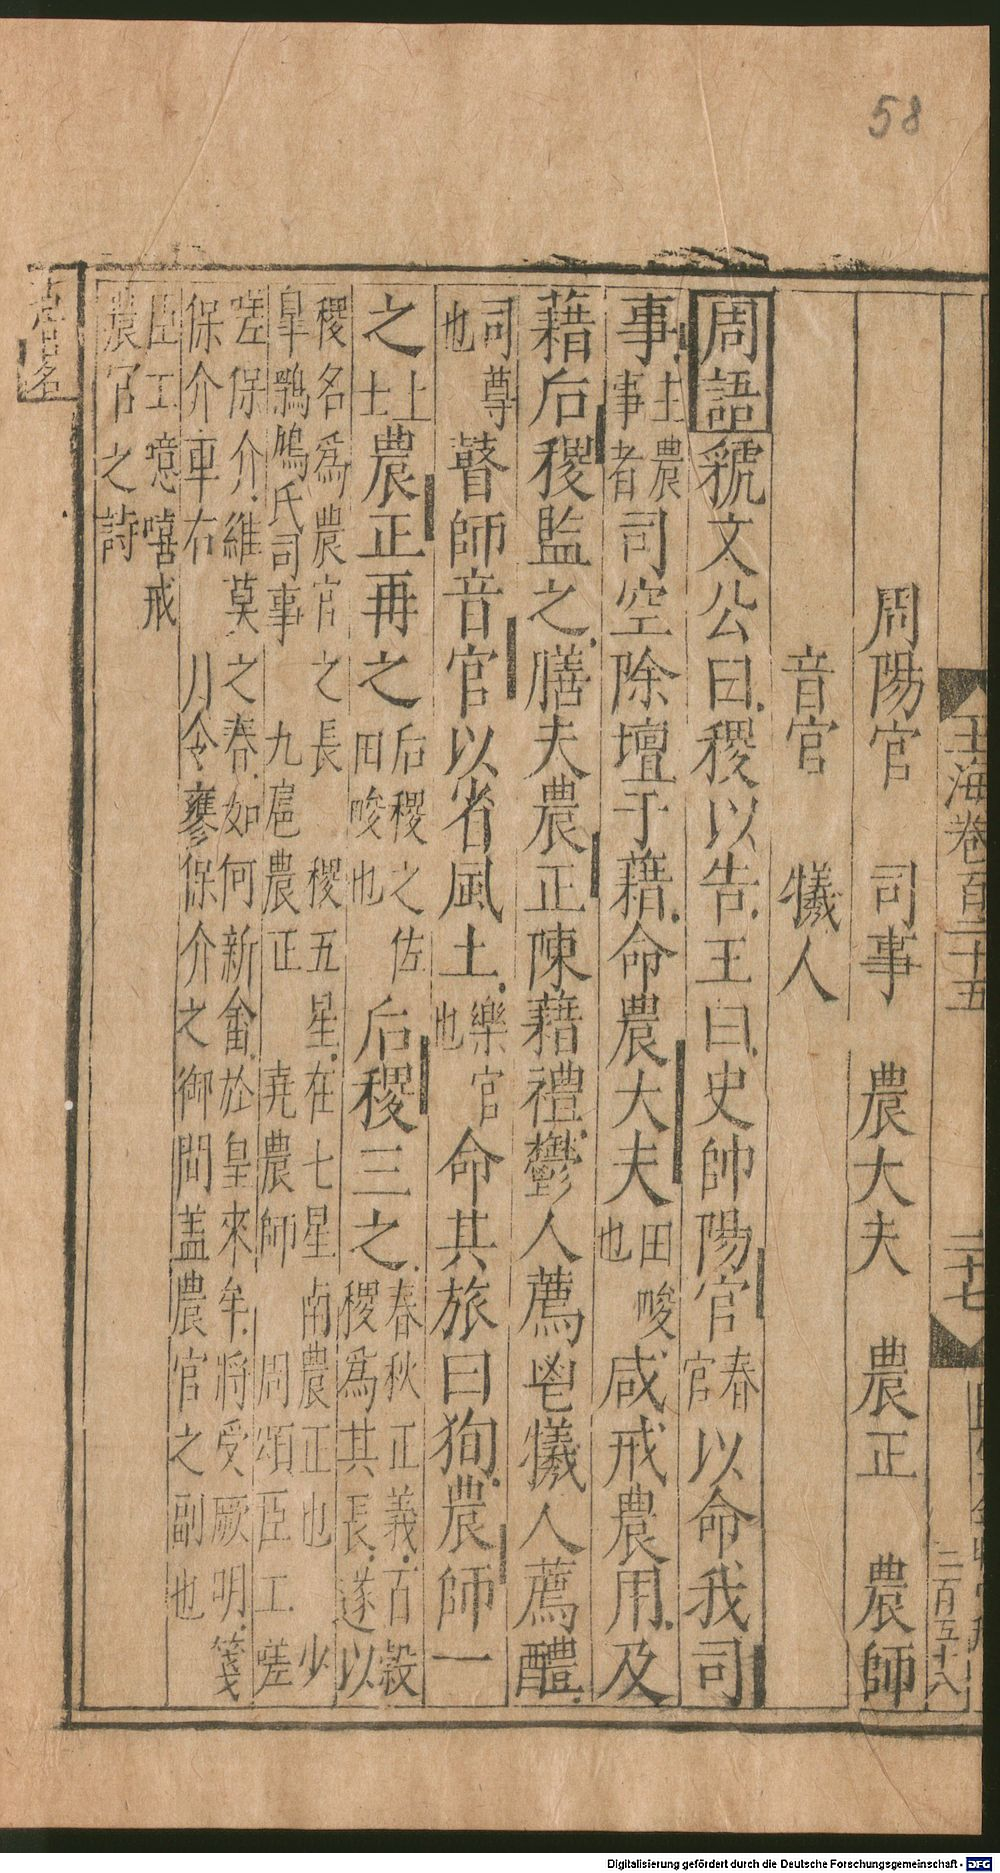 58
玉海卷百二十五
二十七
三百五十八
周陽官　司事　農大夫　農正　農師
音官　犧人
周語虢文公曰稷以告王曰史帥陽官春官以命我司
事主農事者司空除壇于藉命農大夫田畯也咸戒農用及
藉后稷監之膳夫農正陳藉禮鬱人薦鬯犧人薦醴
司尊也瞽師音官以省風土樂官也命其旅曰徇農師一
之上士農正再之后稷之佐田畯也后稷三之春秋正義百穀稷爲其長遂以
稷名爲農官之長　稷五星在七星南農正也　少
皐鶚鳩氏司事　九扈農正　堯農師　周頌臣工嗟
嗟保介維莫之春如何新畬於皇來牟將受厥明箋
保介車右　月令蓼保介之御間盖農官之副也
臣工噫嘻戒
農官之詩
官名
Digitalisierung gefördert durch die Deutsche Forschungsgemeinschaft - DFG